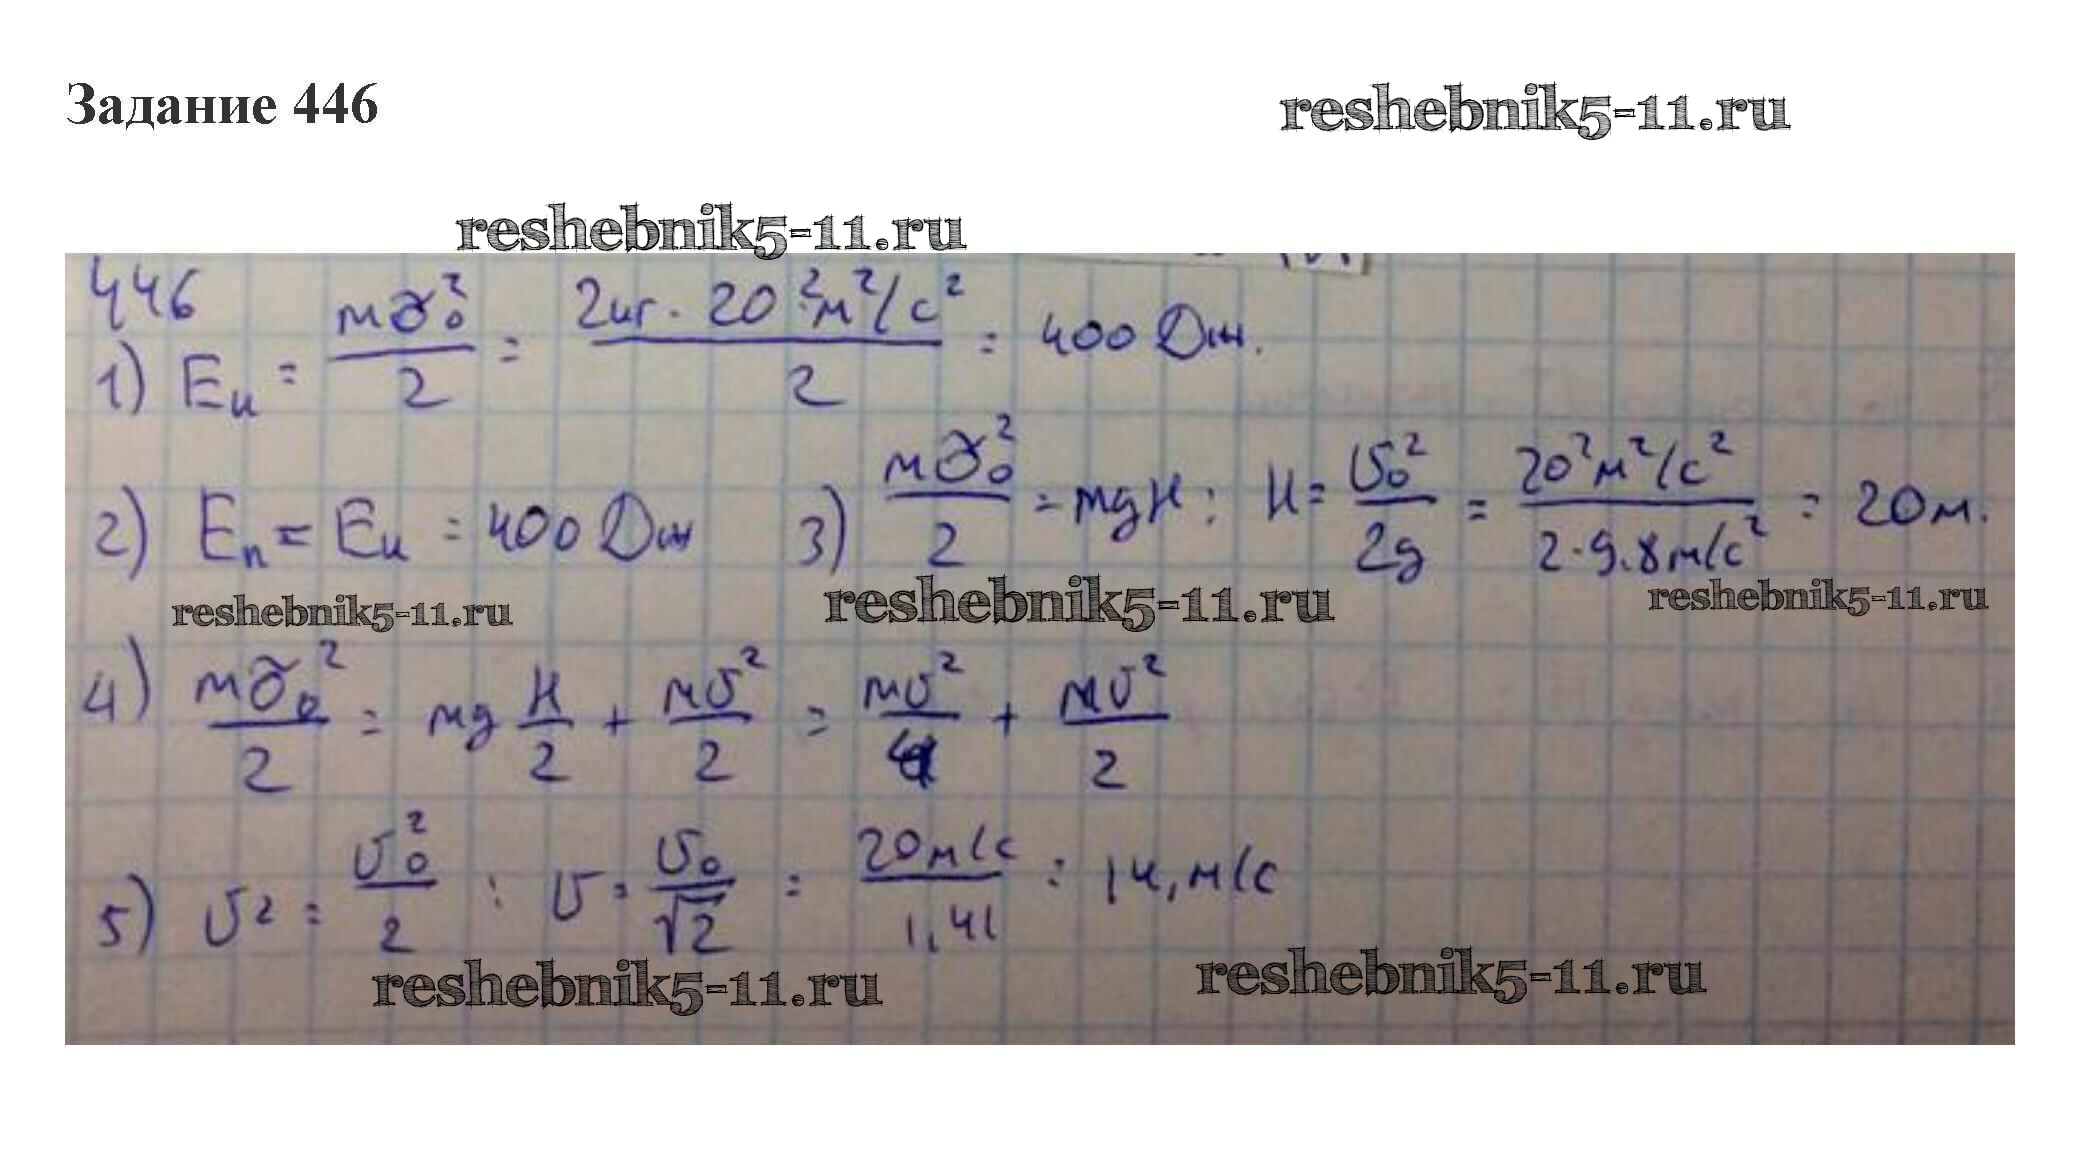 Задание 446
reshebnik5-11.ru
reshebnik5-11.ru
446
1) Eк = mv₀²/2 = 2кг · 20² м²/с² / 2 = 400 Дж.
2) Eп = Eк = 400 Дж 3) mv₀²/2 = mgH; H = v₀²/2g = 20² м²/с² / 2·9.8 м/с² = 20 м.
reshebnik5-11.ru reshebnik5-11.ru reshebnik5-11.ru
4) mv₀²/2 = mg H/2 + mv²/2 = mv²/4 + mv²/2
5) v² = v₀²/2 ; v = v₀/√2 = 20 м/с / 1,41 = 14, м/с
reshebnik5-11.ru reshebnik5-11.ru